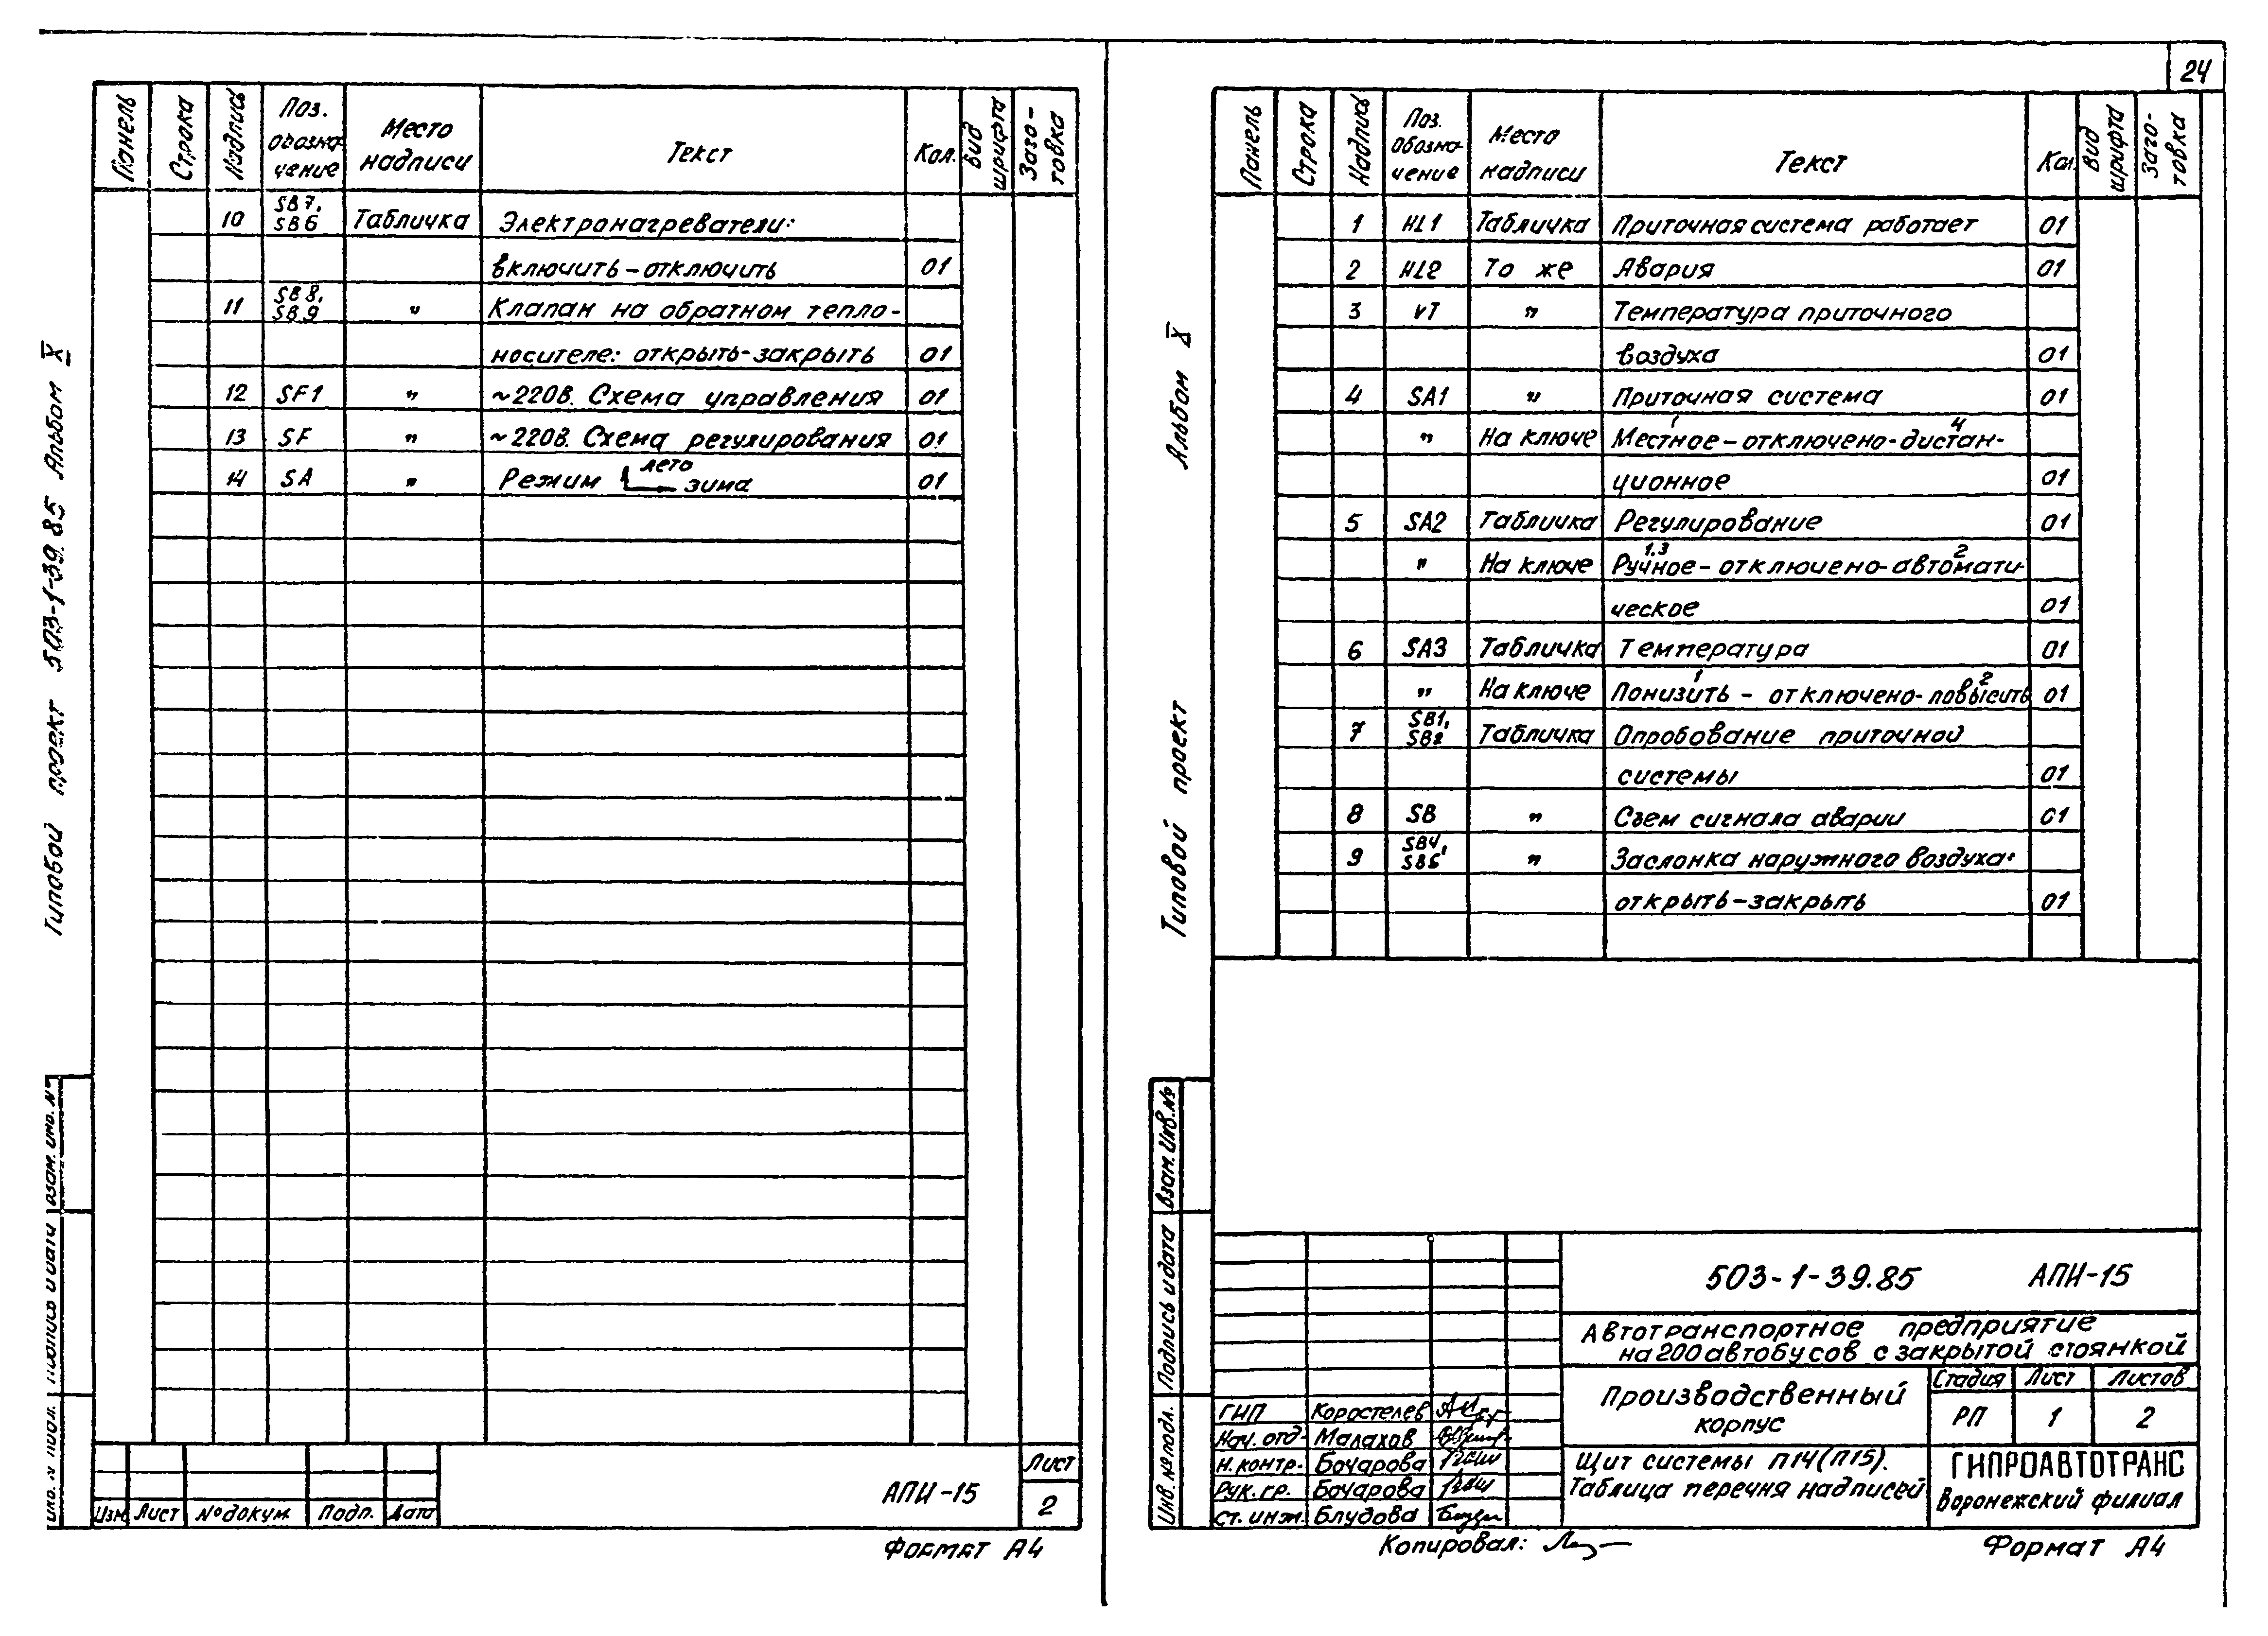 Типовой проект 503-1-39.85 Альбом X
Панель Строка Надпись Поз. обозна- чение Место надписи Текст Кол. Вид шрифта Заго- товка
10 SB7, SB6 Табличка Электронагреватели:
включить-отключить 01
11 SB8, SB9 " Клапан на обратном тепло-
носителе: открыть-закрыть 01
12 SF1 " ~220В. Схема управления 01
13 SF " ~220В. Схема регулирования 01
14 SA " Режим лето зима 01
Взам. инв. №
Подпись и дата
Инв. № подл.
Изм Лист № докум. Подп. Дата
АПИ-15
Лист
2
Формат А4
24
Типовой проект Альбом X
Панель Строка Надпись Поз. обозна- чение Место надписи Текст Кол. Вид шрифта Заго- товка
1 HL1 Табличка Приточная система работает 01
2 HL2 То же Авария 01
3 VT " Температура приточного
воздуха 01
4 SA1 " Приточная система 01
1 4
" На ключе Местное-отключено-дистан-
ционное 01
5 SA2 Табличка Регулирование 01
1.3 2
" На ключе Ручное-отключено-автомати-
ческое 01
6 SA3 Табличка Температура 01
1 2
" На ключе Понизить - отключено-повысить 01
7 SB1, SB2 Табличка Опробование приточной
системы 01
8 SB " Съем сигнала аварии 01
9 SB4, SB5 " Заслонка наружного воздуха:
открыть-закрыть 01
Взам. Инв. №
Подпись и дата
Инв. № подл.
503-1-39.85 АПИ-15
Автотранспортное предприятие
на 200 автобусов с закрытой стоянкой
Производственный
корпус
Стадия Лист Листов
РП 1 2
ГИП Коростелев
Нач. отд. Малахов
Н. контр. Бочарова
Рук. гр. Бочарова
Ст. инж. Блудова
Щит системы П14(П15).
Таблица перечня надписей
ГИПРОАВТОТРАНС
Воронежский филиал
Копировал:
Формат А4